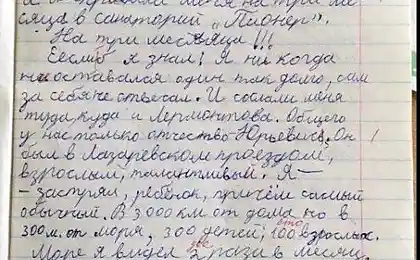 меня на три ме-
сяца в санаторий „Пионер".
На три месяяца !!!
Еесли б я знал! Я ни когда
не оставался один так долго, сам
за себя не отвечал. И сослали меня
туда, куда и Лермонтова. Общего
у нас только отчество – Юрьевич. Он
был в Лазаревском проездом,
взрослым, талантливым. Я –
– застрял, ребёнок, причём самый
обычный. В 3 000 км от дома но в
300 м. от моря, 300 детей; 100 сто взрослых.
Море я видел 2 две раза в месяц